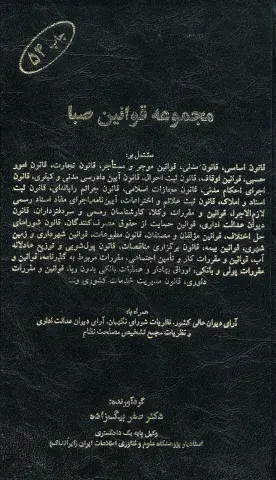 چاپ ۵۴
مجموعه قوانین صبا
مشتمل بر:
قانون اساسی، قانون مدنی، قوانین موجر و مستأجر، قانون تجارت، قانون امور
حسبی، قوانین اوقاف، قانون ثبت احوال، قانون آیین دادرسی مدنی و کیفری، قانون
اجرای احکام مدنی، قانون مجازات اسلامی، قانون جرائم رایانه‌ای، قانون ثبت
اسناد و املاک، قانون ثبت علائم و اختراعات، آیین‌نامه‌اجرای مفاد اسناد رسمی
لازم‌الاجرا، قوانین و مقررات وکلا، کارشناسان رسمی و سردفتران، قانون
دیوان عدالت اداری، قوانین حمایت از حقوق مصرف‌کنندگان، قانون شوراهای
حل اختلاف، قوانین مؤلفان و مصنفان، قانون مطبوعات، قوانین شهرداری و زمین
شهری، قوانین بیمه، قانون برگزاری مناقصات، قانون پولشویی و توزیع عادلانه
آب، قوانین و مقررات کار و تأمین اجتماعی، مقررات مربوط به گذرنامه، قوانین و
مقررات پولی و بانکی، اوراق بهادار و عملیات بانکی بدون ربا، قوانین و مقررات
داوری، قانون مدیریت خدمات کشوری و...
همراه با:
آرای دیوان عالی کشور، نظریات شورای نگهبان، آرای دیوان عدالت اداری
و نظریات مجمع تشخیص مصلحت نظام
گردآورنده:
دکتر صفر بیگ‌زاده
وکیل پایه یک دادگستری
استادیار پژوهشگاه علوم و فناوری اطلاعات ایران (ایرانداک)